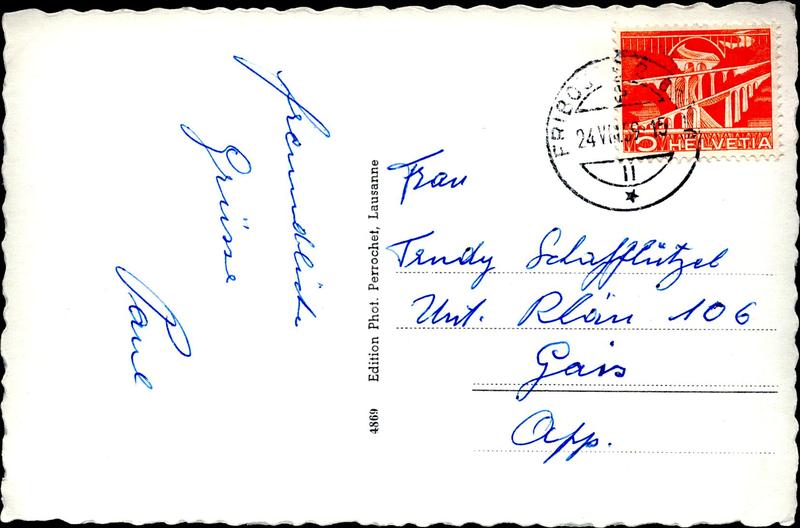 freundliche
Grüsse
Paul
4869 Edition Phot. Perrochet, Lausanne
FRIBOU
24.VIII.59-15
11
5 HELVETIA
Frau
Trudy Schafflützel
Unt. Rhän 106
Gais
App.